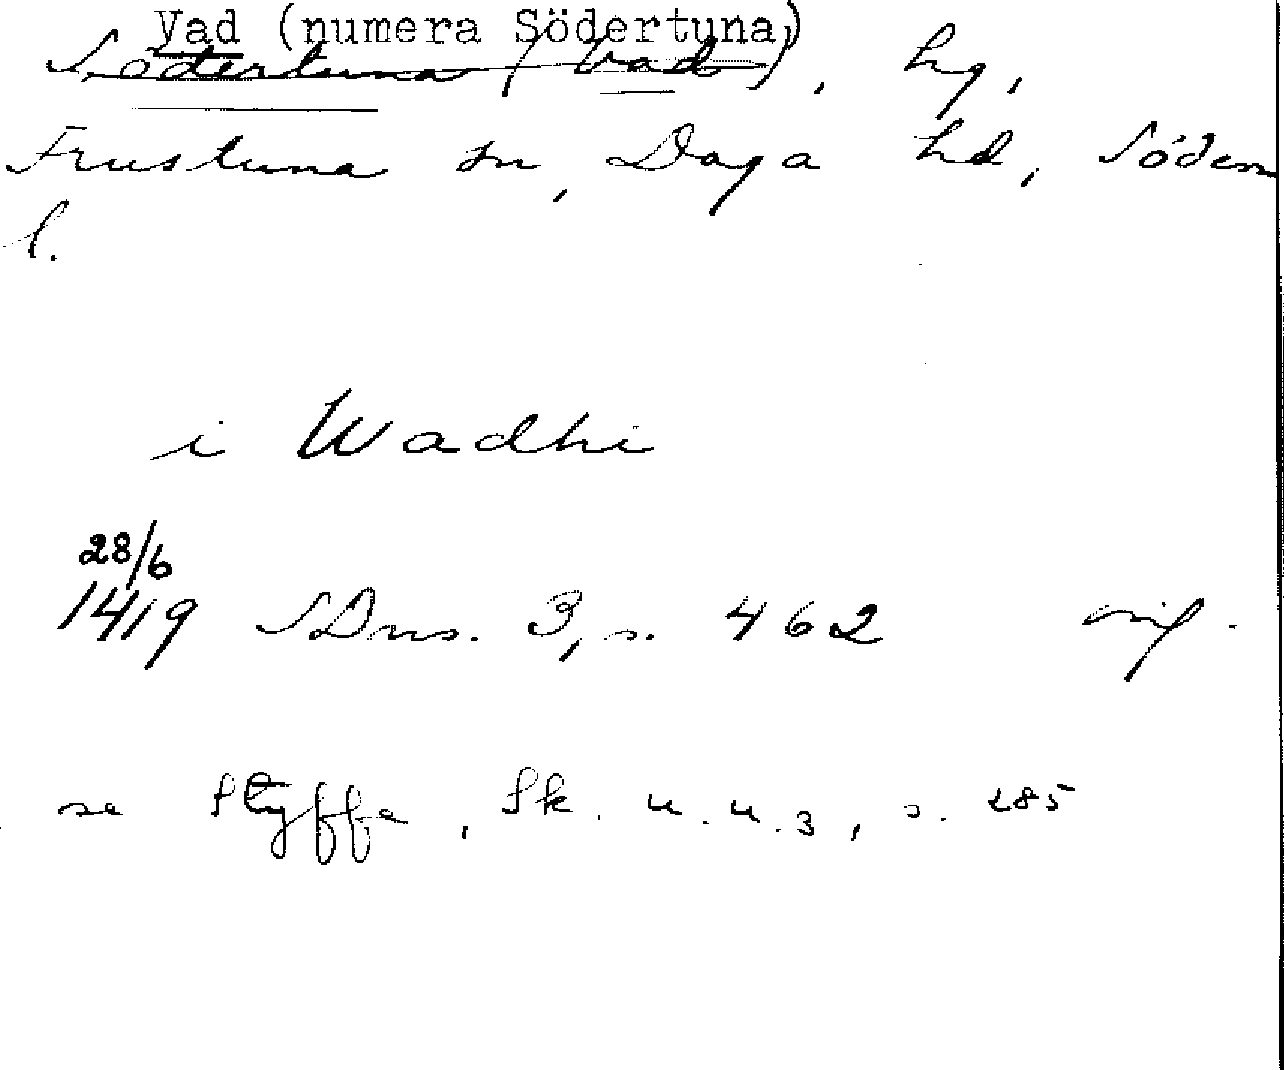 Vad (numera Södertuna)
Södertuna (Vad), hg,
Frustuna sn, Daga hd, Söderm
l.
i Wadhi
28/6
1419 SDns. 3, s. 462 or.
se Styffe, Sk. u. u. 3, s. 285